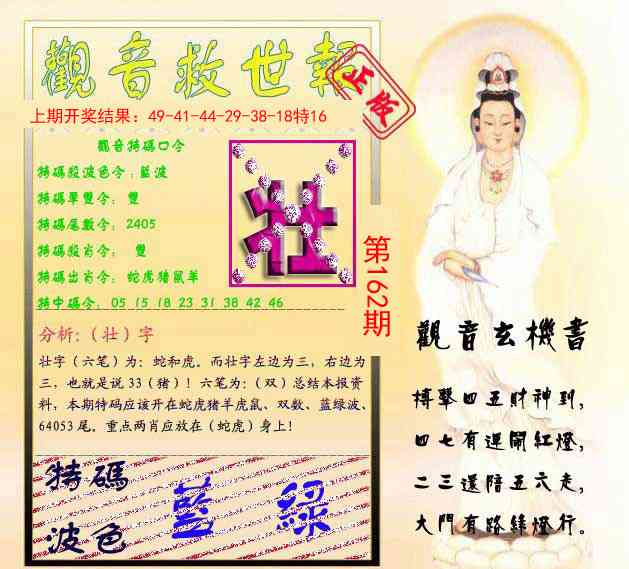 觀音救世報
正版
上期开奖结果：49-41-44-29-38-18特16
觀音特碼口令
特碼殺波色令：藍波
特碼單雙令： 雙
特碼尾數令： 2405
特碼殺肖令： 雙
特碼出肖令： 蛇虎猪鼠羊
特中碼令： 05 15 18 23 31 38 42 46
壮
第162期
分析:（壮）字
壮字（六笔）为：蛇和虎。而壮字左边为三，右边为
三，也就是说 33（猪）！六笔为：（双）总结本报资
料，本期特码应该开在蛇虎猪羊虎鼠、双数、蓝绿波、
64053 尾。重点两肖应放在（蛇虎）身上！
特碼
波色
藍 綠
觀音玄機書
搏擊四五財神到，
四七有運鬧紅燈，
二三還陪五六走，
大門有路綠燈行。